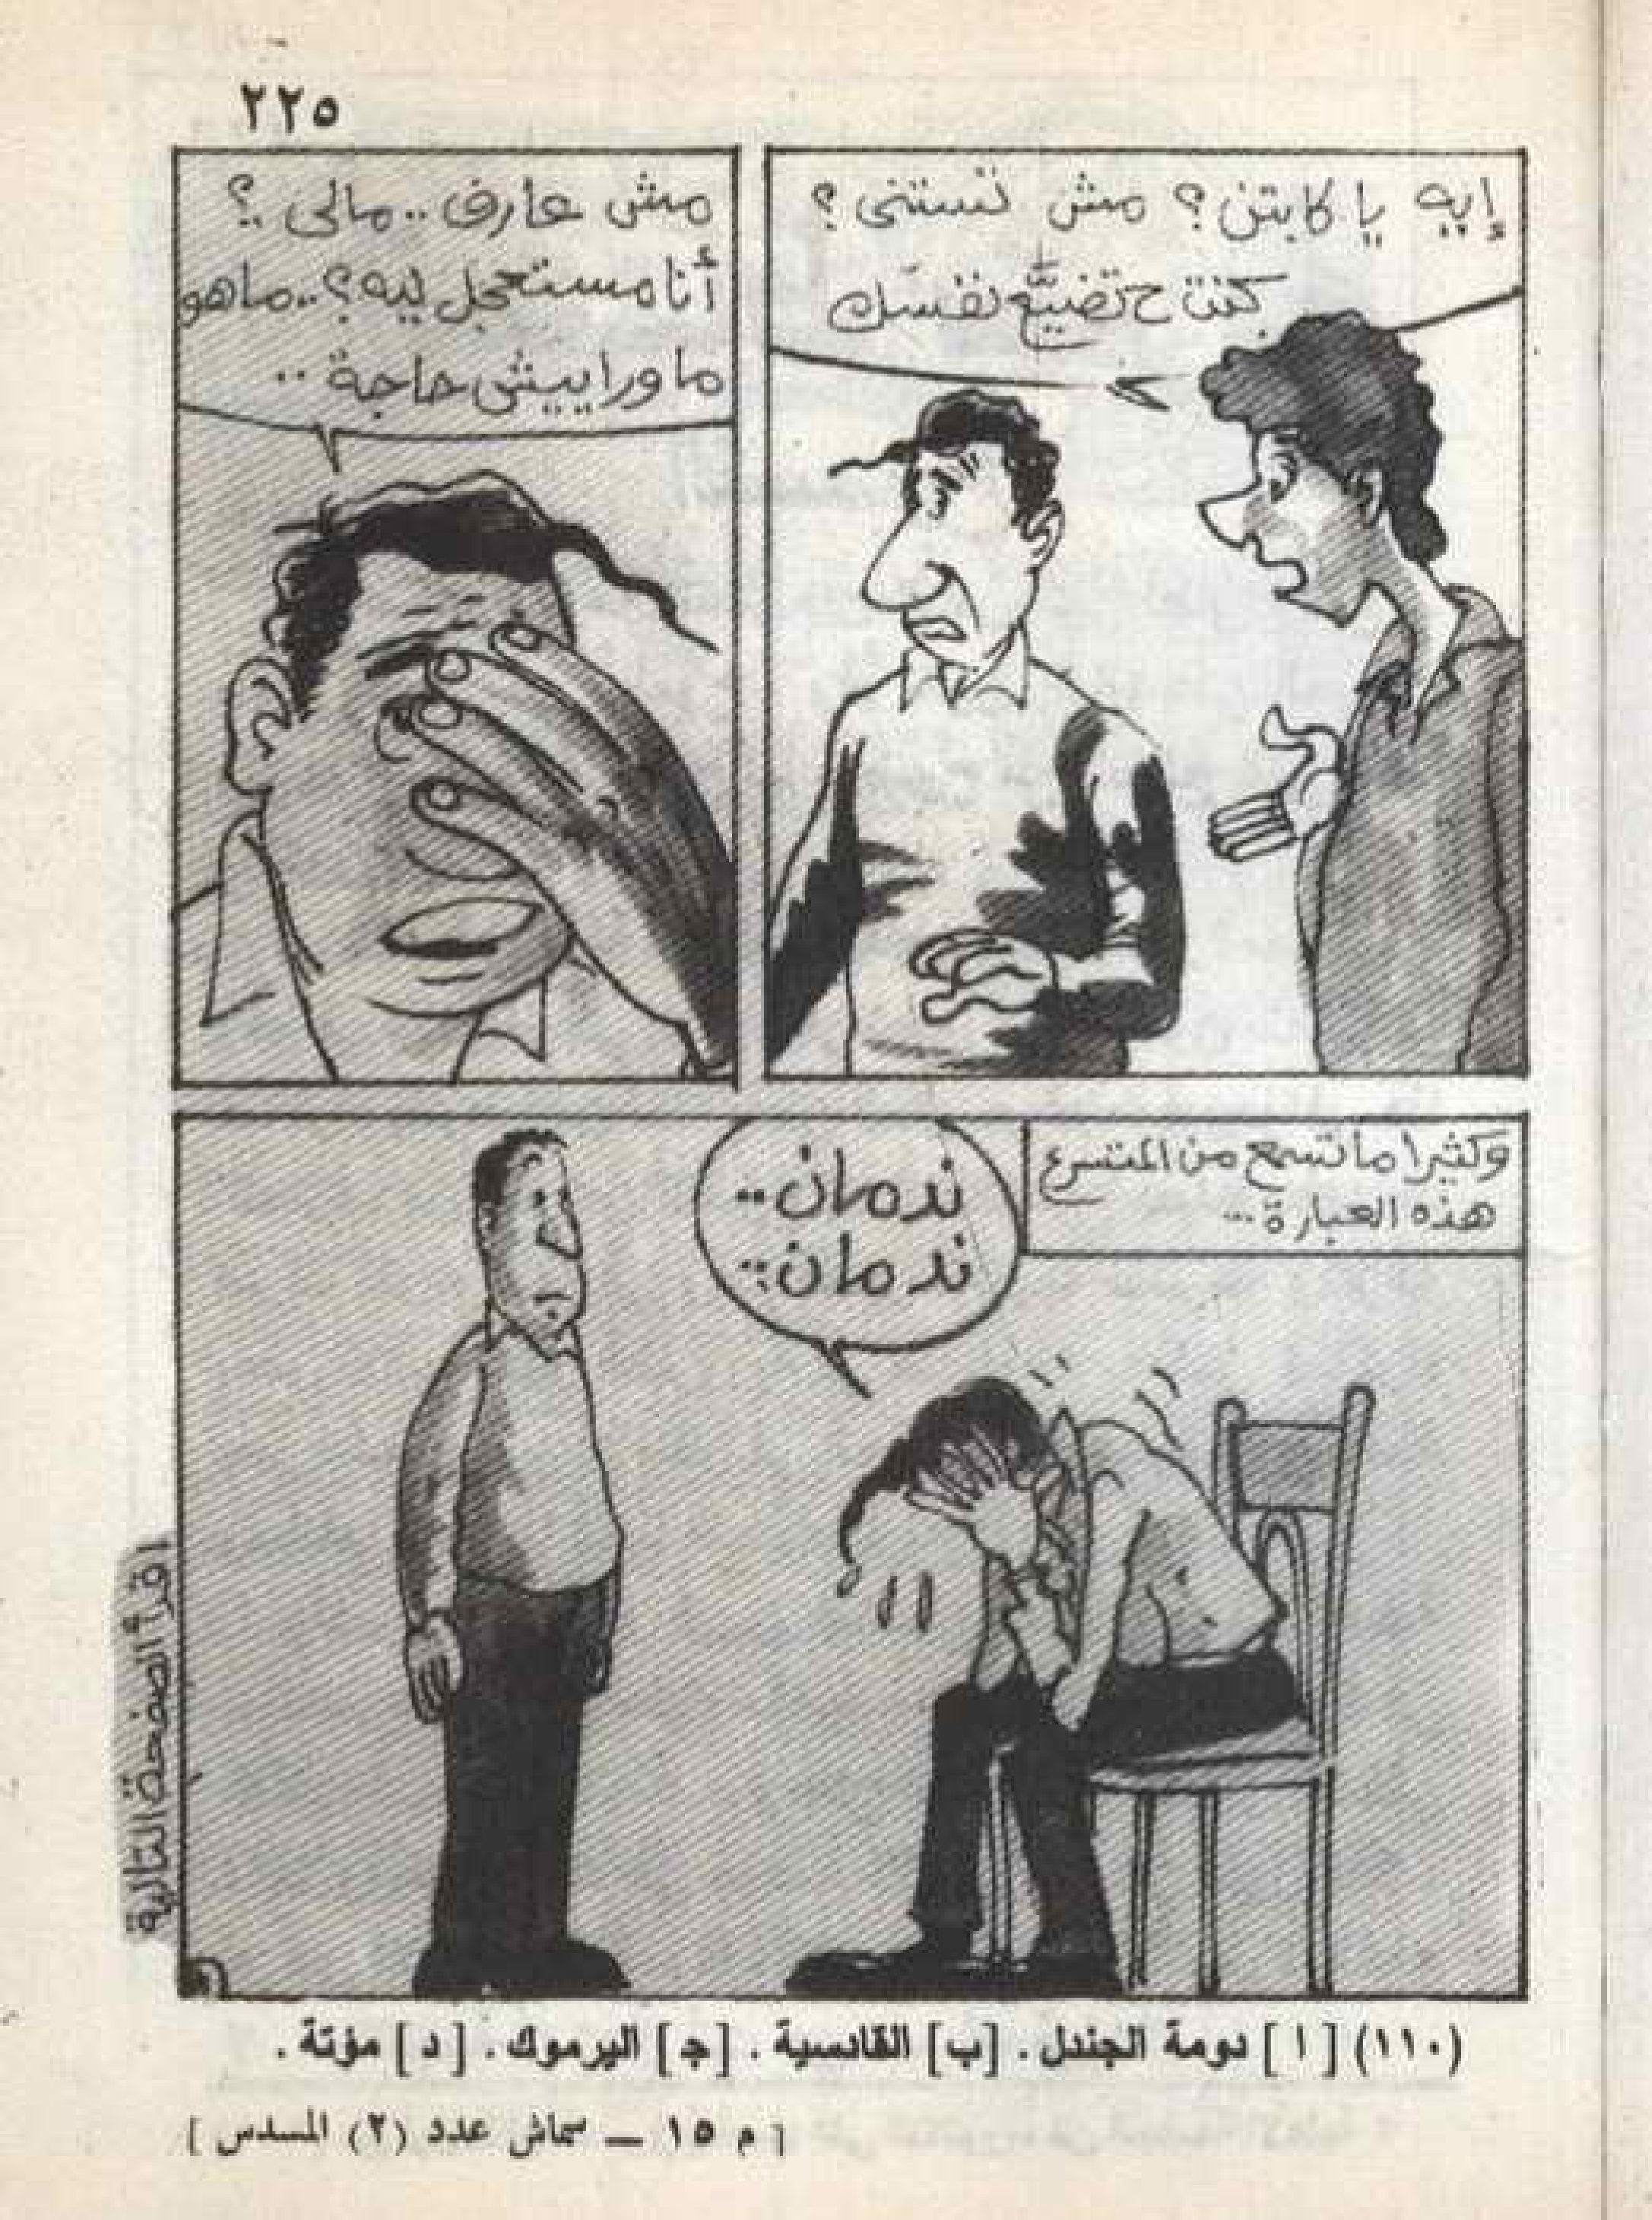 ٢٢٥
إيه يا كابتن؟ مش تستنى؟
كنت ح تضيَّع نفسَك
مش عارف.. مالى ؟
أنا مستعجل ليه؟.. ما هو
ما وراييش حاجة..
وكثيرا ما تسمع من المتسرع
هذه العبارة...
ندمان..
ندمان..
اقرأ الصفحة التالية
(١١٠) [ ا ] دومة الجندل . [ب] القادسية . [جـ] اليرموك . [ د ] مؤتة .
[ م ١٥ — سماش عدد (٢) المسدس ]